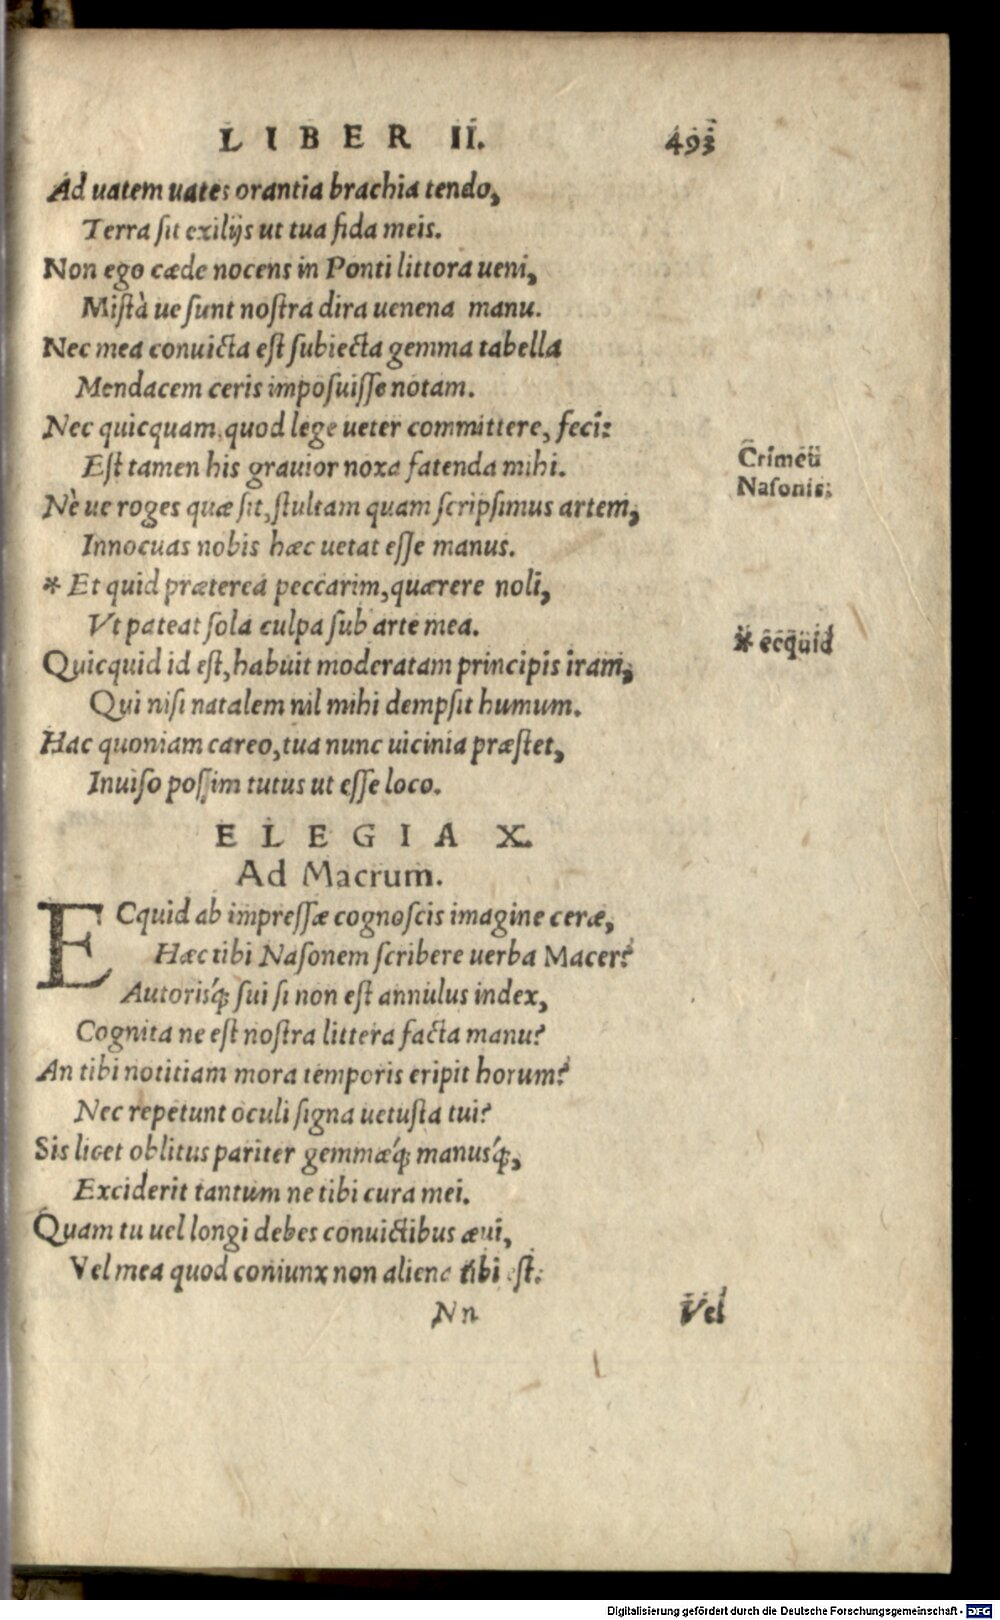 LIBER II. 493
Ad uatem uates orantia brachia tendo,
Terra sit exilijs ut tua fida meis.
Non ego cæde nocens in Ponti littora ueni,
Mistà ue sunt nostra dira uenena manu.
Nec mea conuicta est subiecta gemma tabella
Mendacem ceris imposuisse notam.
Nec quicquam, quod lege ueter committere, feci:
Est tamen his grauior noxa fatenda mihi.
Crimeū
Nasonis:
Nè ue roges quæ sit, stultam quam scripsimus artem,
Innocuas nobis hæc uetat esse manus.
* Et quid præterea peccarim, quærere noli,
Vt pateat sola culpa sub arte mea.
* ecquid
Quicquid id est, habuit moderatam principis iram,
Qui nisi natalem nil mihi dempsit humum.
Hac quoniam careo, tua nunc uicinia præstet,
Inuiso possim tutus ut esse loco.
ELEGIA X.
Ad Macrum.
ECquid ab impressæ cognoscis imagine ceræ,
Hæc tibi Nasonem scribere uerba Macer?
Autoris'q; sui si non est annulus index,
Cognita ne est nostra littera facta manu?
An tibi notitiam mora temporis eripit horum?
Nec repetunt oculi signa uetusta tui?
Sis licet oblitus pariter gemmæ'q; manus'q;,
Exciderit tantum ne tibi cura mei.
Quam tu uel longi debes conuictibus æui,
Vel mea quod coniunx non aliena tibi est:
Nn Vel
Digitalisierung gefördert durch die Deutsche Forschungsgemeinschaft - DFG